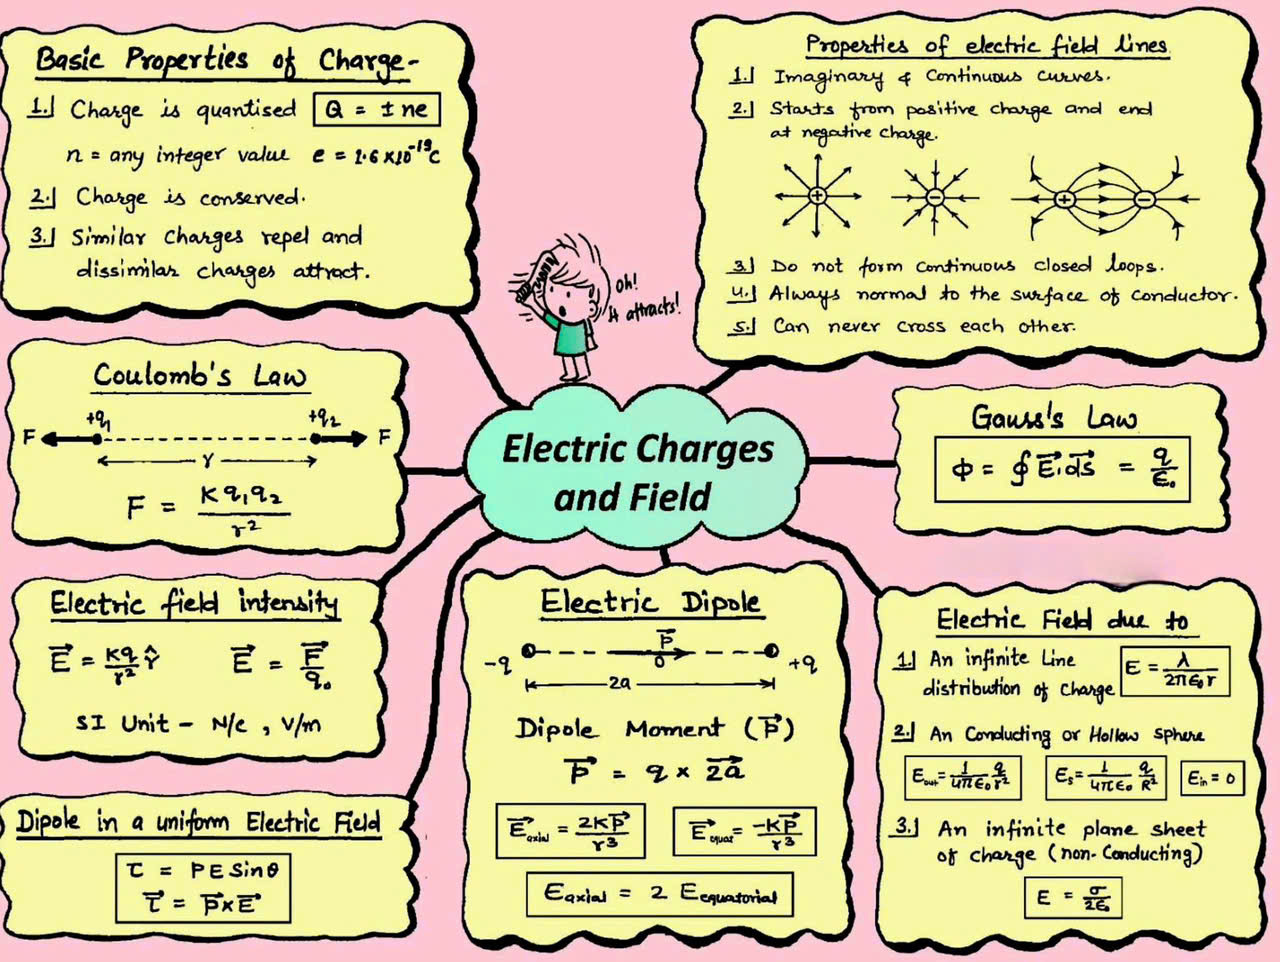 Basic Properties of Charge-
1.] Charge is quantised Q = ± ne
n = any integer value e = 1.6 × 10⁻¹⁹C
2.] Charge is conserved.
3.] Similar charges repel and
dissimilar charges attract.
Properties of electric field lines
1.] Imaginary & Continuous curves.
2.] Starts from positive charge and end
at negative charge.
+ − + −
3.] Do not form continuous closed loops.
4.] Always normal to the surface of conductor.
5.] Can never cross each other.
Oh!
It attracts!
Coulomb's Law
+q₁ +q₂
F F
r
F = Kq₁q₂/r²
Electric Charges
and Field
Gauss's Law
Φ = ∮ E⃗.ds⃗ = q/ε₀
Electric field intensity
E⃗ = Kq/r² r̂ E⃗ = F⃗/q₀
SI Unit – N/C , V/m
Dipole in a uniform Electric Field
τ = PE Sinθ
τ⃗ = P⃗×E⃗
Electric Dipole
P⃗
-q O +q
2a
Dipole Moment (P⃗)
P⃗ = q × 2a⃗
E⃗axial = 2KP⃗/r³ E⃗equat = -KP⃗/r³
Eaxial = 2 Eequatorial
Electric Field due to
1.] An infinite Line
distribution of charge E = λ/2πε₀r
2.] An Conducting or Hollow sphere
Eout = 1/4πε₀ q/r² Es = 1/4πε₀ q/R² Ein = 0
3.] An infinite plane sheet
of charge (non-Conducting)
E = σ/2ε₀